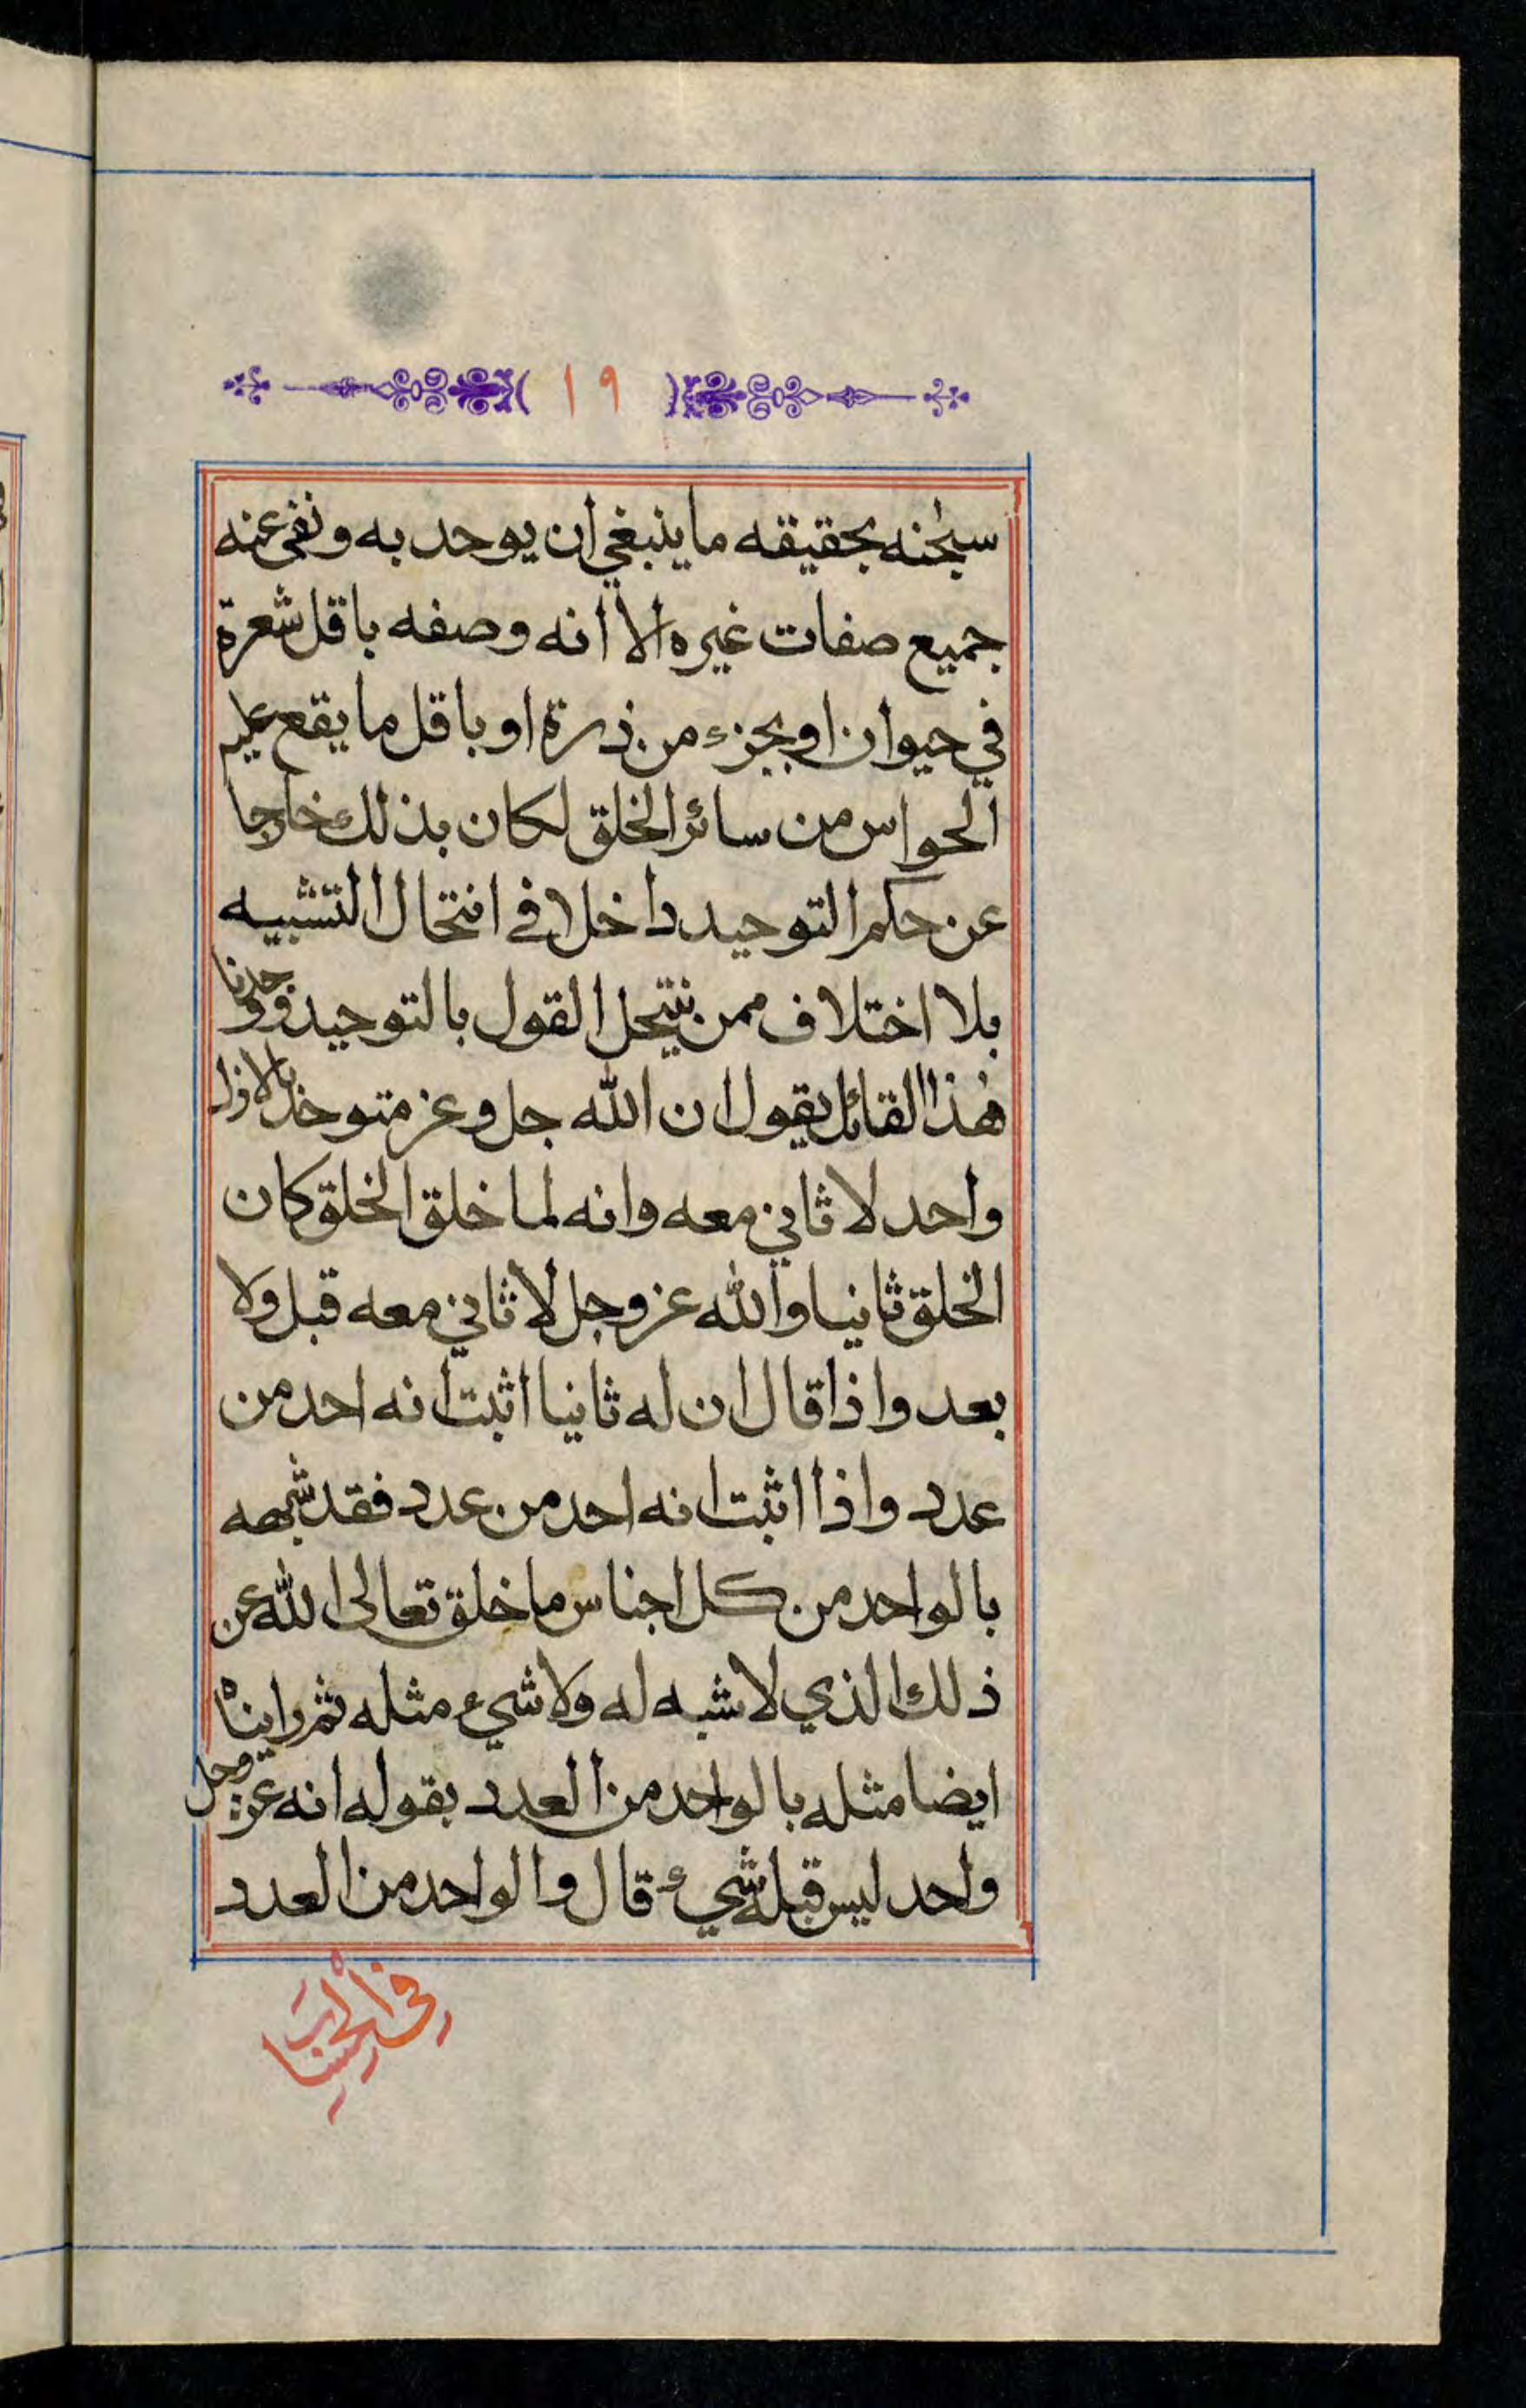 ١٩
سبحٰنه بحقيقه ما ينبغي ان يوحد به ونفى عنه
جميع صفات غيره الا انه وصفه باقل شعرة
في حيوان او بجزء من ذرة او باقل ما يقع عليه
الحواس من سائر الخلق لكان بذلك خارجا
عن حكم التوحيد داخلا في انتحال التشبيه
بلا اختلاف ممن ينتحل القول بالتوحيد ووجدنا
هٰذا القائل يقول ان الله جل وعز متوحد بالازل
واحد لا ثاني معه وانه لما خلق الخلق كان
الخلق ثانيا والله عز وجل لا ثاني معه قبل ولا
بعد واذا قال ان له ثانيا اثبت انه احد من
عدد واذا اثبت انه احد من عدد فقد شبهه
بالواحد من كل اجناس ما خلق تعالى الله عن
ذلك الذي لا شبه له ولا شيء مثله ثم رايناه
ايضا مثله بالواحد من العدد بقوله انه عز وجل
واحد ليس قبله شيء قال والواحد من العدد
في الحساب